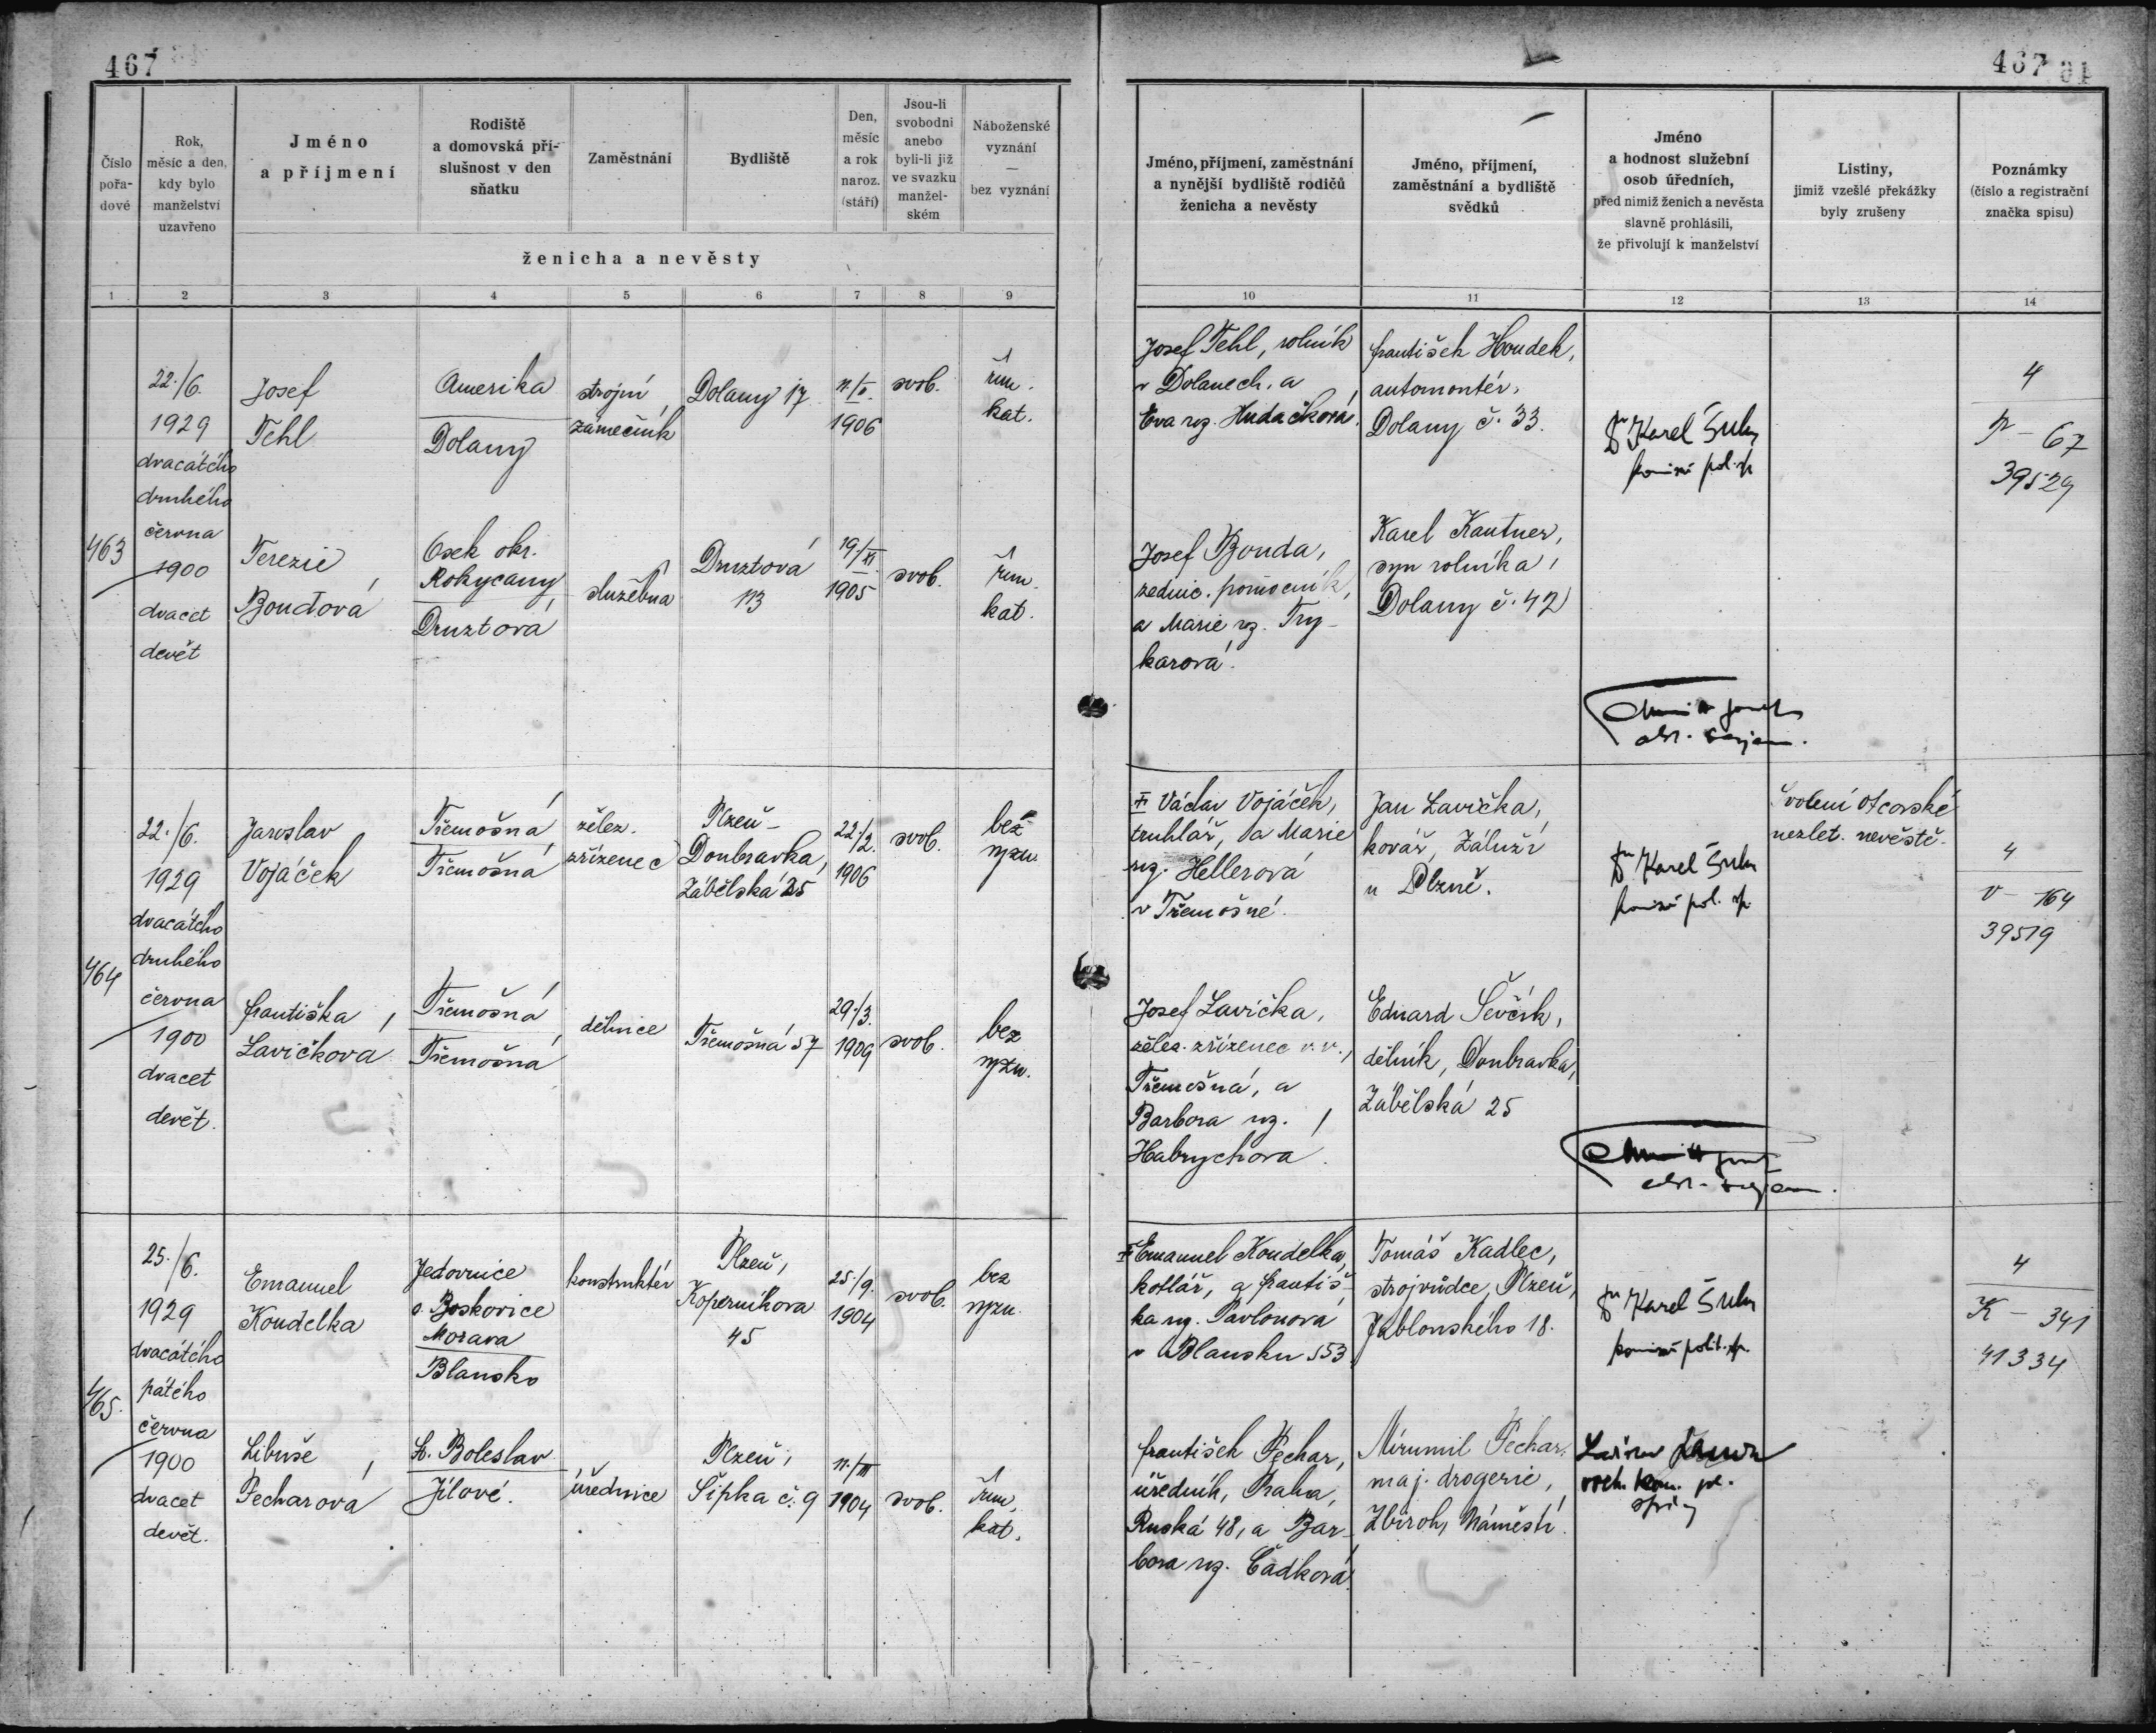 467
467
Číslo pořadové
Rok, měsíc a den, kdy bylo manželství uzavřeno
Jméno a příjmení
Rodiště a domovská příslušnost v den sňatku
Zaměstnání
Bydliště
Den, měsíc a rok naroz. (stáří)
Jsou-li svobodni anebo byli-li již ve svazku manželském
Náboženské vyznání — bez vyznání
ženicha a nevěsty
Jméno, příjmení, zaměstnání a nynější bydliště rodičů ženicha a nevěsty
Jméno, příjmení, zaměstnání a bydliště svědků
Jméno a hodnost služební osob úředních, před nimiž ženich a nevěsta slavně prohlásili, že přivolují k manželství
Listiny, jimiž vzešlé překážky byly zrušeny
Poznámky (číslo a registrační značka spisu)
1 2 3 4 5 6 7 8 9 10 11 12 13 14
463
22./6.
1929
dvacátého
druhého
června
1900
dvacet
devět
Josef
Tehl
Amerika
Dolany
strojní
zámečník
Dolany 17
1906
svob.
řím.
kat.
Josef Tehl, rolník
v Dolanech, a
Eva roz. Hudačková.
František Houdek,
automontér,
Dolany č. 33.
Dr Karel Šulc
4
67
39529
Terezie
Bouďová
Osek okr.
Rokycany
Druztová
služebná
Druztová
113
19./XI.
1905
svob.
řím.
kat.
Josef Bouda,
zednic. pomocník,
a Marie roz. Try-
karová.
Karel Kautner,
syn rolníka,
Dolany č. 42
464
22./6.
1929
dvacátého
druhého
června
1900
dvacet
devět.
Jaroslav
Vojáček
Třemošná
Třemošná
želez.
zřízenec
Plzeň-
Doubravka,
Zábělská 25
22./2.
1906
svob.
bez
vyzn.
Václav Vojáček,
truhlář, a Marie
roz. Hellerová
v Třemošné.
Jan Lavička,
kovář, Záluží
u Plzně.
Dr Karel Šulc
Svolení otcovské
nezlet. nevěstě.
4
V - 164
39519
Františka
Lavičková
Třemošná
Třemošná
dělnice
Třemošná 57
29./3.
1909
svob.
bez
vyzn.
Josef Lavička,
želez. zřízenec v. v.,
Třemošná, a
Barbora roz.
Habrychová.
Eduard Ševčík,
dělník, Doubravka,
Zábělská 25
465.
25./6.
1929
dvacátého
pátého
června
1900
dvacet
devět.
Emanuel
Koudelka
Jedovnice
o. Boskovice
Morava
Blansko
konstruktér
Plzeň,
Koperníkova
45
25./9.
1904
svob.
bez
vyzn.
Emanuel Koudelka,
kotlář, a Františ-
ka roz. Pavlonová
v Blansku 553
Tomáš Kadlec,
strojvůdce, Plzeň,
Jablonského 18.
Dr Karel Šulc
4
K - 341
41334
Libuše
Pecharová
Ml. Boleslav
Jílové.
úřednice
Plzeň,
Šipka č. 9
1904
svob.
řím.
kat.
František Pechar,
úředník, Praha,
Ruská 48, a Bar-
bora roz. Čadková.
Mirumil Pechar,
maj. drogerie,
Zbiroh, Náměstí.